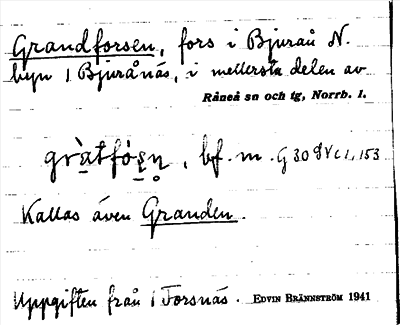 Grandforsen, fors i Bjuraå N.
byn 1 Bjurånäs, i mellersta delen av
Råneå sn och tg, Norrb. l.
gràtfòrsn̥, bf. m. G 30
Kallas även Granden.
Uppgiften från 1 Forsnäs. EDVIN BRÄNNSTRÖM 1941